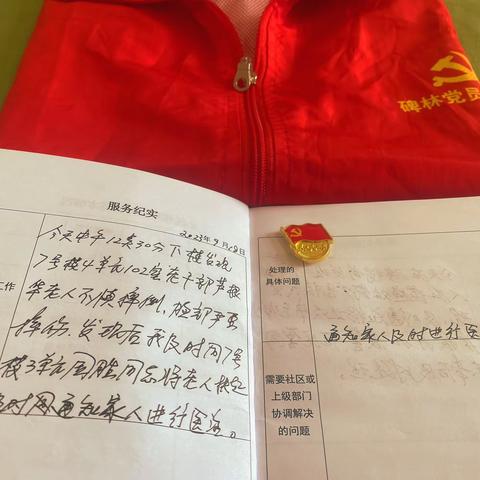 碑林党员
服务纪实
2023年9月18日
工作
今天中午12点30分下楼发现
7号楼4单元102室老干部
华老人不慎摔倒，脸部严重
摔伤，发现后我及时同7号
楼3单元周胜同志将老人扶起
及时同通知家人进行医治。
处理的
具体问题
通知家人及时进行医
需要社区或
上级部门
协调解决
的问题